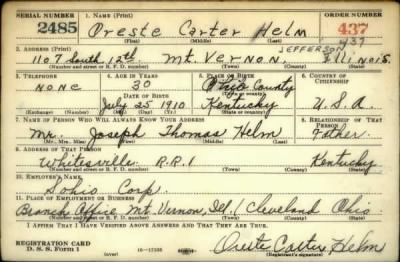 SERIAL NUMBER 1. NAME (Print) ORDER NUMBER
2485 Oreste Carter Helm 437
437
(First) (Middle) (Last)
2. ADDRESS (Print) JEFFERSON
1107 South 12th. Mt. Vernon. Illinois.
(Number and street or R. F. D. number) (Town) (County) (State)
3. TELEPHONE 4. AGE IN YEARS 5. PLACE OF BIRTH 6. COUNTRY OF CITIZENSHIP
None 30 Ohio County
DATE OF BIRTH (Town or county)
July 25 1910 Kentucky U.S.A.
(Exchange) (Number) (Mo.) (Day) (Yr.) (State or country)
7. NAME OF PERSON WHO WILL ALWAYS KNOW YOUR ADDRESS 8. RELATIONSHIP OF THAT PERSON
Mr. Joseph Thomas Helm Father.
(Mr., Mrs., Miss) (First) (Middle) (Last)
9. ADDRESS OF THAT PERSON
Whitesville R.R.1 Kentucky
(Number and street or R. F. D. number) (Town) (County) (State)
10. EMPLOYER'S NAME
Sohio Corp.
11. PLACE OF EMPLOYMENT OR BUSINESS
Branch Office Mt. Vernon, Ill / Cleveland Ohio
(Number and street or R. F. D. number) (Town) (County) (State)
I AFFIRM THAT I HAVE VERIFIED ABOVE ANSWERS AND THAT THEY ARE TRUE.
REGISTRATION CARD
D. S. S. Form 1 (over) 16—17105 Oreste Carter Helm
(Registrant's signature)